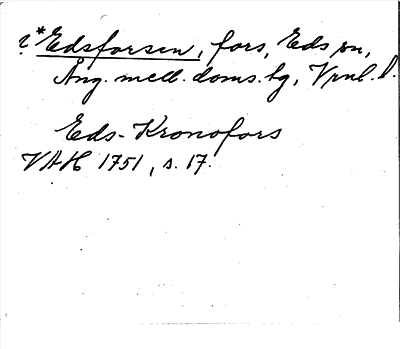 ?*Edsforsen, fors, Eds sn,
Ång. mell. doms. lg, Vnl. l.
Eds-Kronofors
VAH 1751, s. 17.